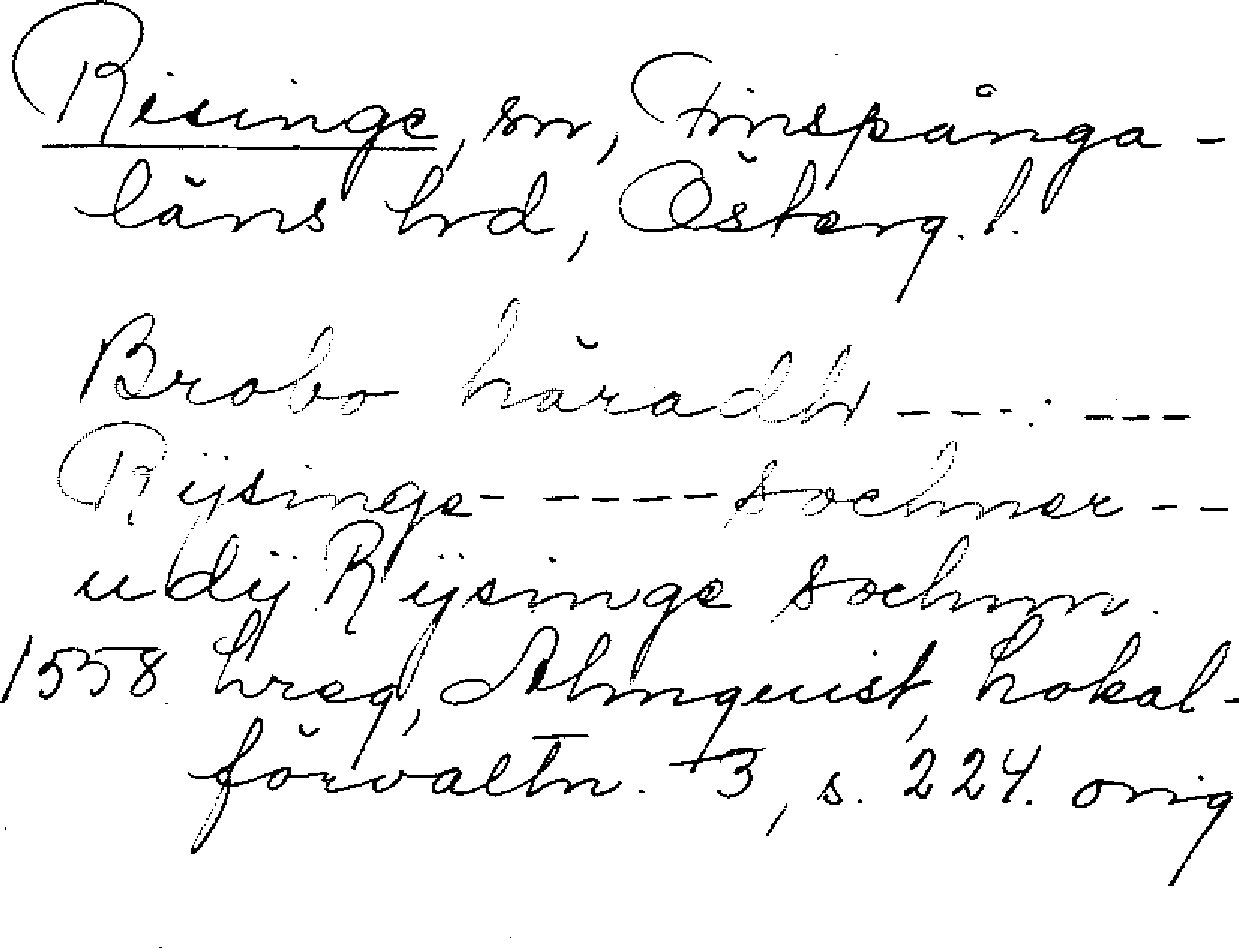 Risinge, sn, Finspånga-
läns hd, Österg. l.
Brobo häradh --- . ---
Rijsinge- ---- sochner --
udij Rijsinge sochnn.
1558 Lreg, Almquist, Lokal-
förvaltn. 3, s. 224. orig